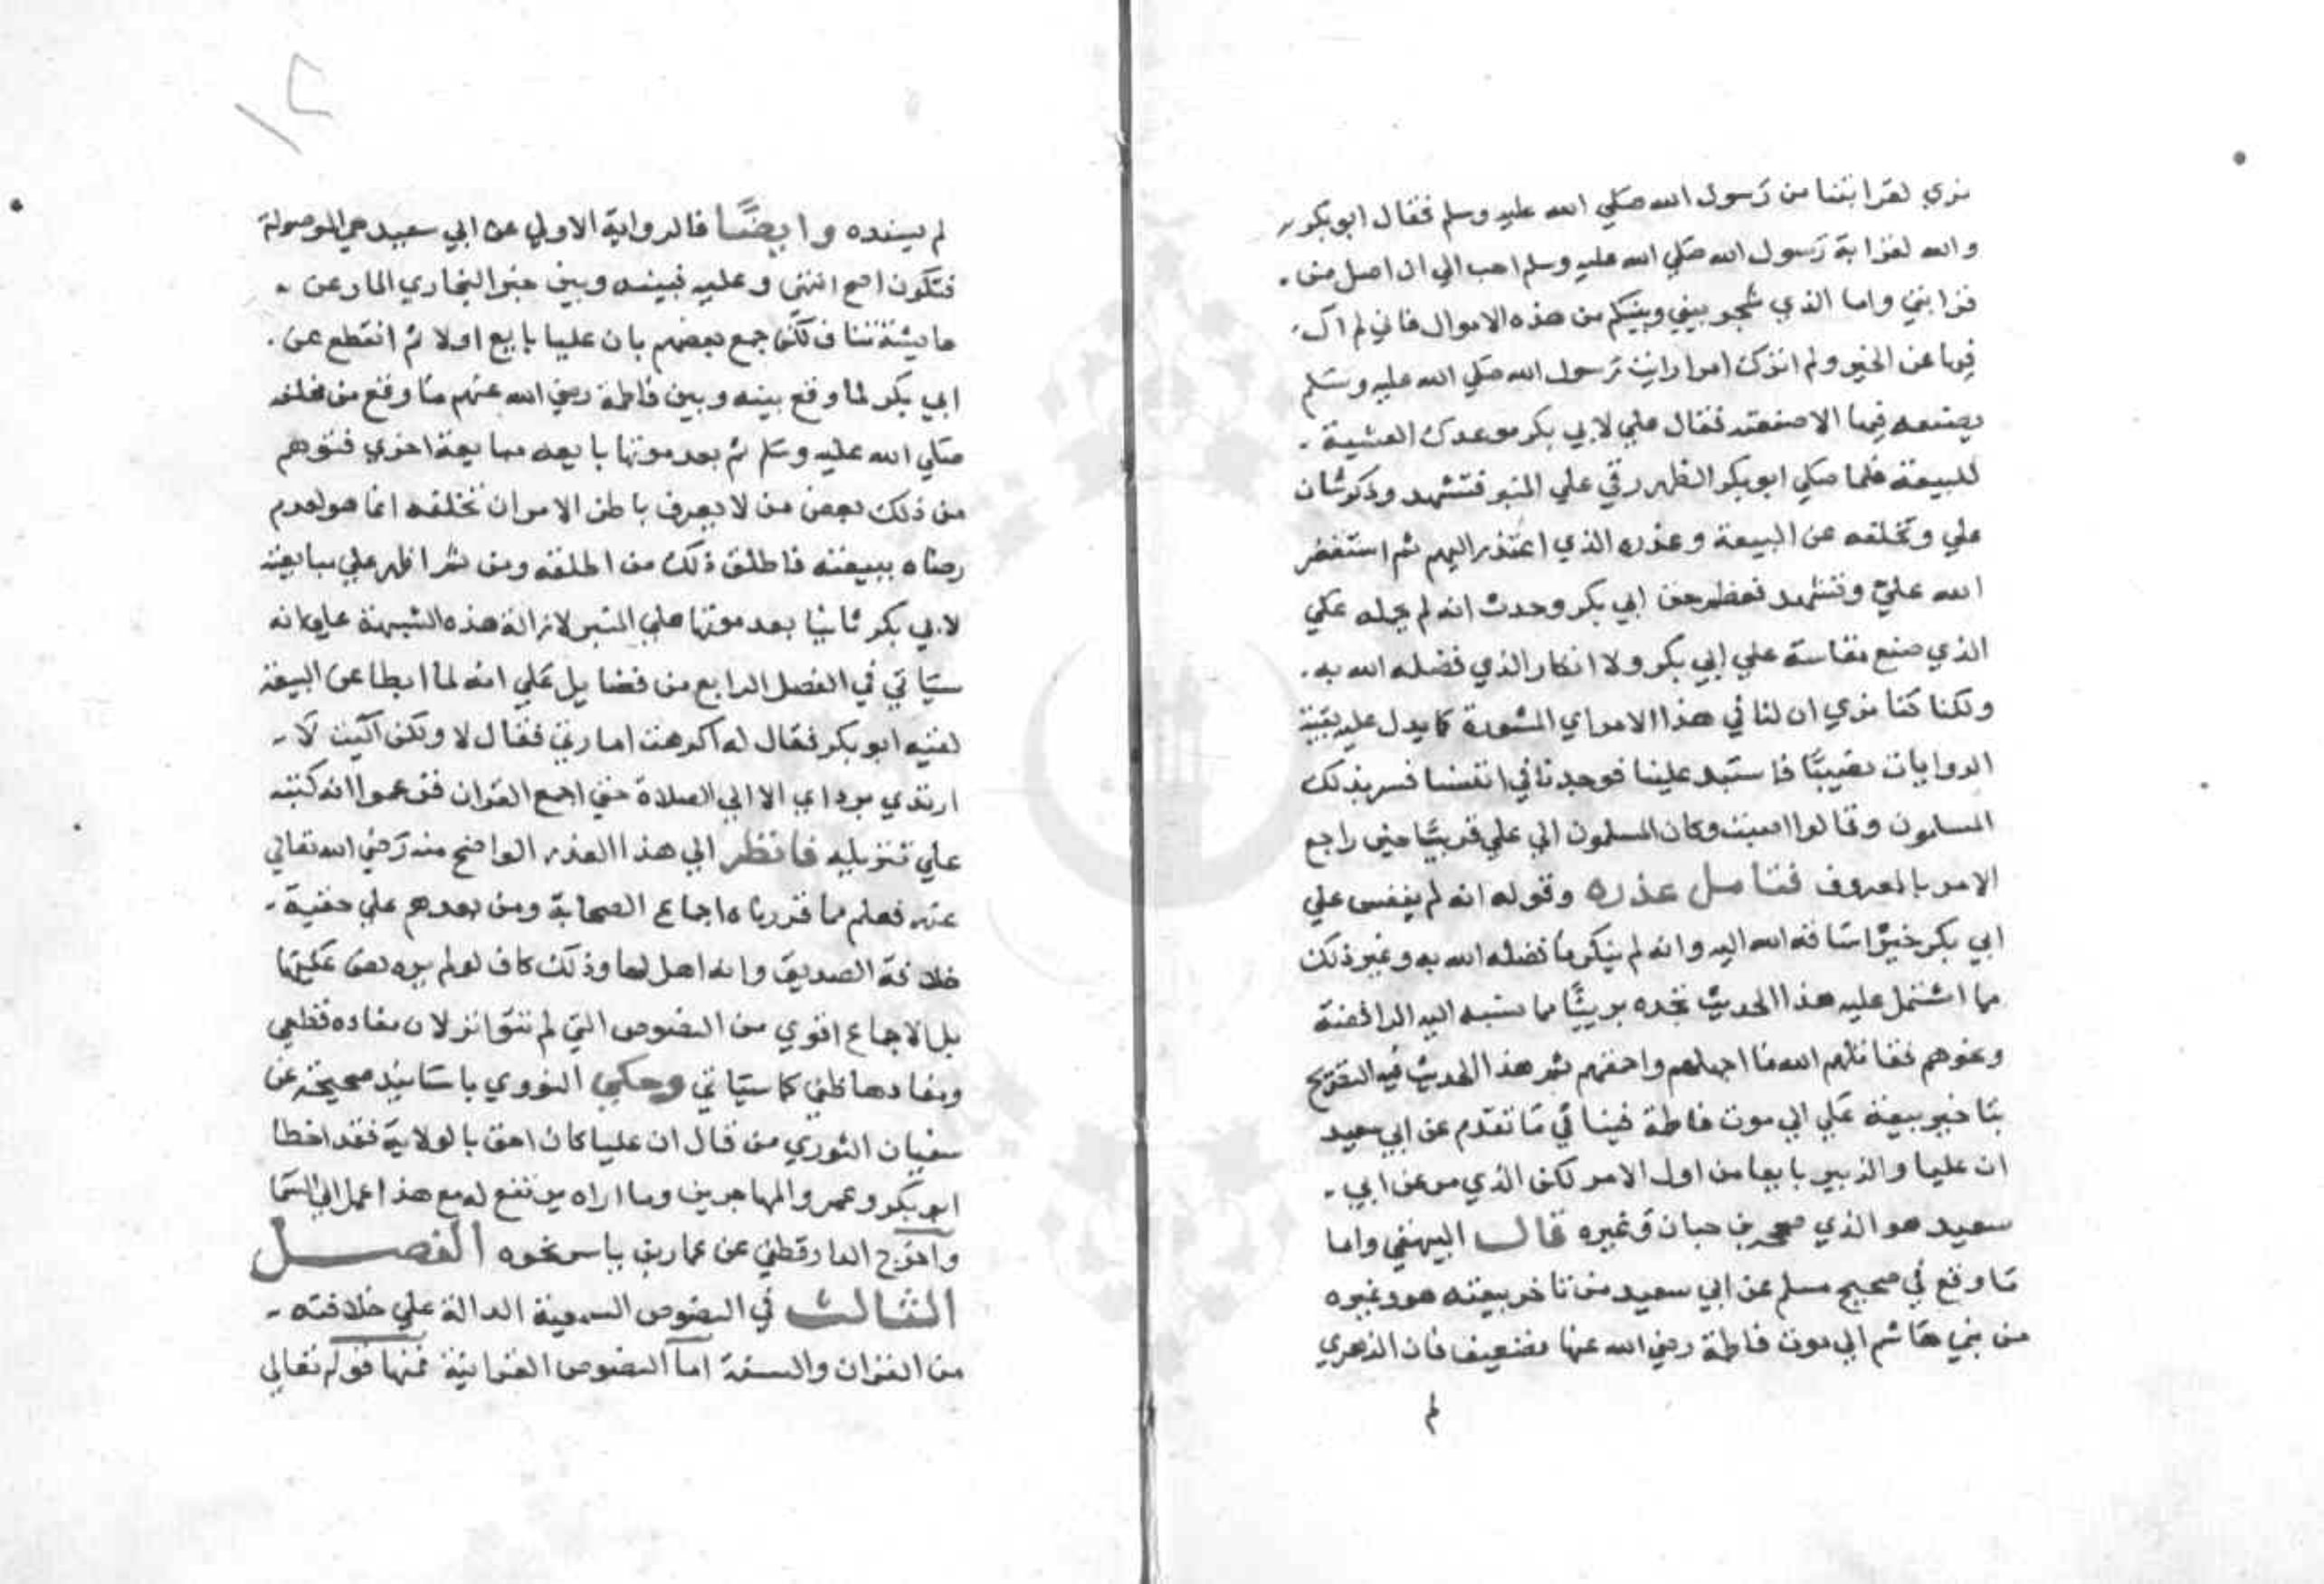 نري لقرابتنا من رسول الله صلي الله عليه وسلم فقال ابو بكر
والله لقرابة رسول الله صلي الله عليه وسلم احب الي ان اصل من
قرابتي واما الذي شجر بيني وبينكم من هذه الاموال فاني لم آل
فيها عن الخير ولم اترك امرا رايت رسول الله صلي الله عليه وسلم
يصنعه فيها الا صنعته فقال علي لابي بكر موعدك العشية
للبيعة فلما صلي ابو بكر الظهر رقي علي المنبر فتشهد وذكر شان
علي وتخلفه عن البيعة وعذره الذي اعتذر اليهم ثم استغفر
الله علي وتشهد فعظم حق ابي بكر وحدث انه لم يحمله علي
الذي صنع نفاسة علي ابي بكر ولا انكار الذي فضله الله به
ولكنا كنا نري ان لنا في هذا الامر اي المشورة كما يدل عليه بقية
الروايات نصيبًا فاستبد علينا فوجدنا في انفسنا فسر بذلك
المسلمون وقالوا اصبت وكان المسلمون الي علي قريبًا حين راجع
الامر بالمعروف فتامل عذره وقوله انه لم ينفس علي
ابي بكر خيرًا ساقه الله اليه وانه لم ينكر ما فضله الله به وغير ذلك
مما اشتمل عليه هذا الحديث تجده بريئًا مما نسبه اليه الرافضة
ونحوهم فقاتلهم الله ما اجهلهم واحمقهم ثم هذا الحديث فيه التصريح
بتاخير بيعة علي الي موت فاطمة فينافي ما تقدم عن ابي سعيد
ان عليا والزبير بايعا من اول الامر لكن الذي مر عن ابي
سعيد هو الذي صححه بن حبان وغيره قال البيهقي واما
ما وقع في صحيح مسلم عن ابي سعيد من تاخر بيعته هو وغيره
من بني هاشم الي موت فاطمة رضي الله عنها فضعيف فان الزهري
لم
١٢
لم يسنده وايضًا فالرواية الاولي عن ابي سعيد هي الموصولة
فتكون اصح انتهي وعليه فبينه وبين خبر البخاري المار عن
عايشة تناف لكن جمع بعضهم بان عليا بايع اولا ثم انقطع عن
ابي بكر لما وقع بينه وبين فاطمة رضي الله عنهم ما وقع من مخلفه
صلي الله عليه وسلم ثم بعد موتها بايعه مبايعة اخري فتوهم
من ذلك بعض من لا يعرف باطن الامر ان تخلفه انما هو لعدم
رضاه ببيعته فاطلق ذلك من اطلقه ومن ثم اظهر علي مبايعته
لابي بكر ثانيا بعد موتها علي المنبر لازالة هذه الشبهة علي انه
سياتي في الفصل الرابع من فضايل علي انه لما ابطا عن البيعة
لقيه ابو بكر فقال له اكرهت امارتي فقال لا ولكن آليت لا
ارتدي بردايي الا الي الصلاة حتي اجمع القران فزعموا انه كتبه
علي تنزيله فانظر الي هذا العذر الواضح منه رضي الله تعالي
عنه فعلم مما قررناه اجماع الصحابة ومن بعدهم علي حقية
خلافة الصديق وانه اهل لها وذلك كاف لو لم يرد نص عليها
بل الاجماع اقوي من النصوص التي لم تتواتر لان مفاده قطعي
ومفادها ظني كما سياتي وحكي النووي باسانيد صحيحة عن
سفيان الثوري من قال ان عليا كان احق بالولاية فقد اخطا
ابو بكر وعمر والمهاجرين وما اراه يرتفع له مع هذا عمل الي السما
واخرج الدارقطني عن عمار بن ياسر نحوه الفصل
الثالث في النصوص السمعية الدالة علي خلافته
من القران والسنة اما النصوص القرانية فمنها قوله تعالي